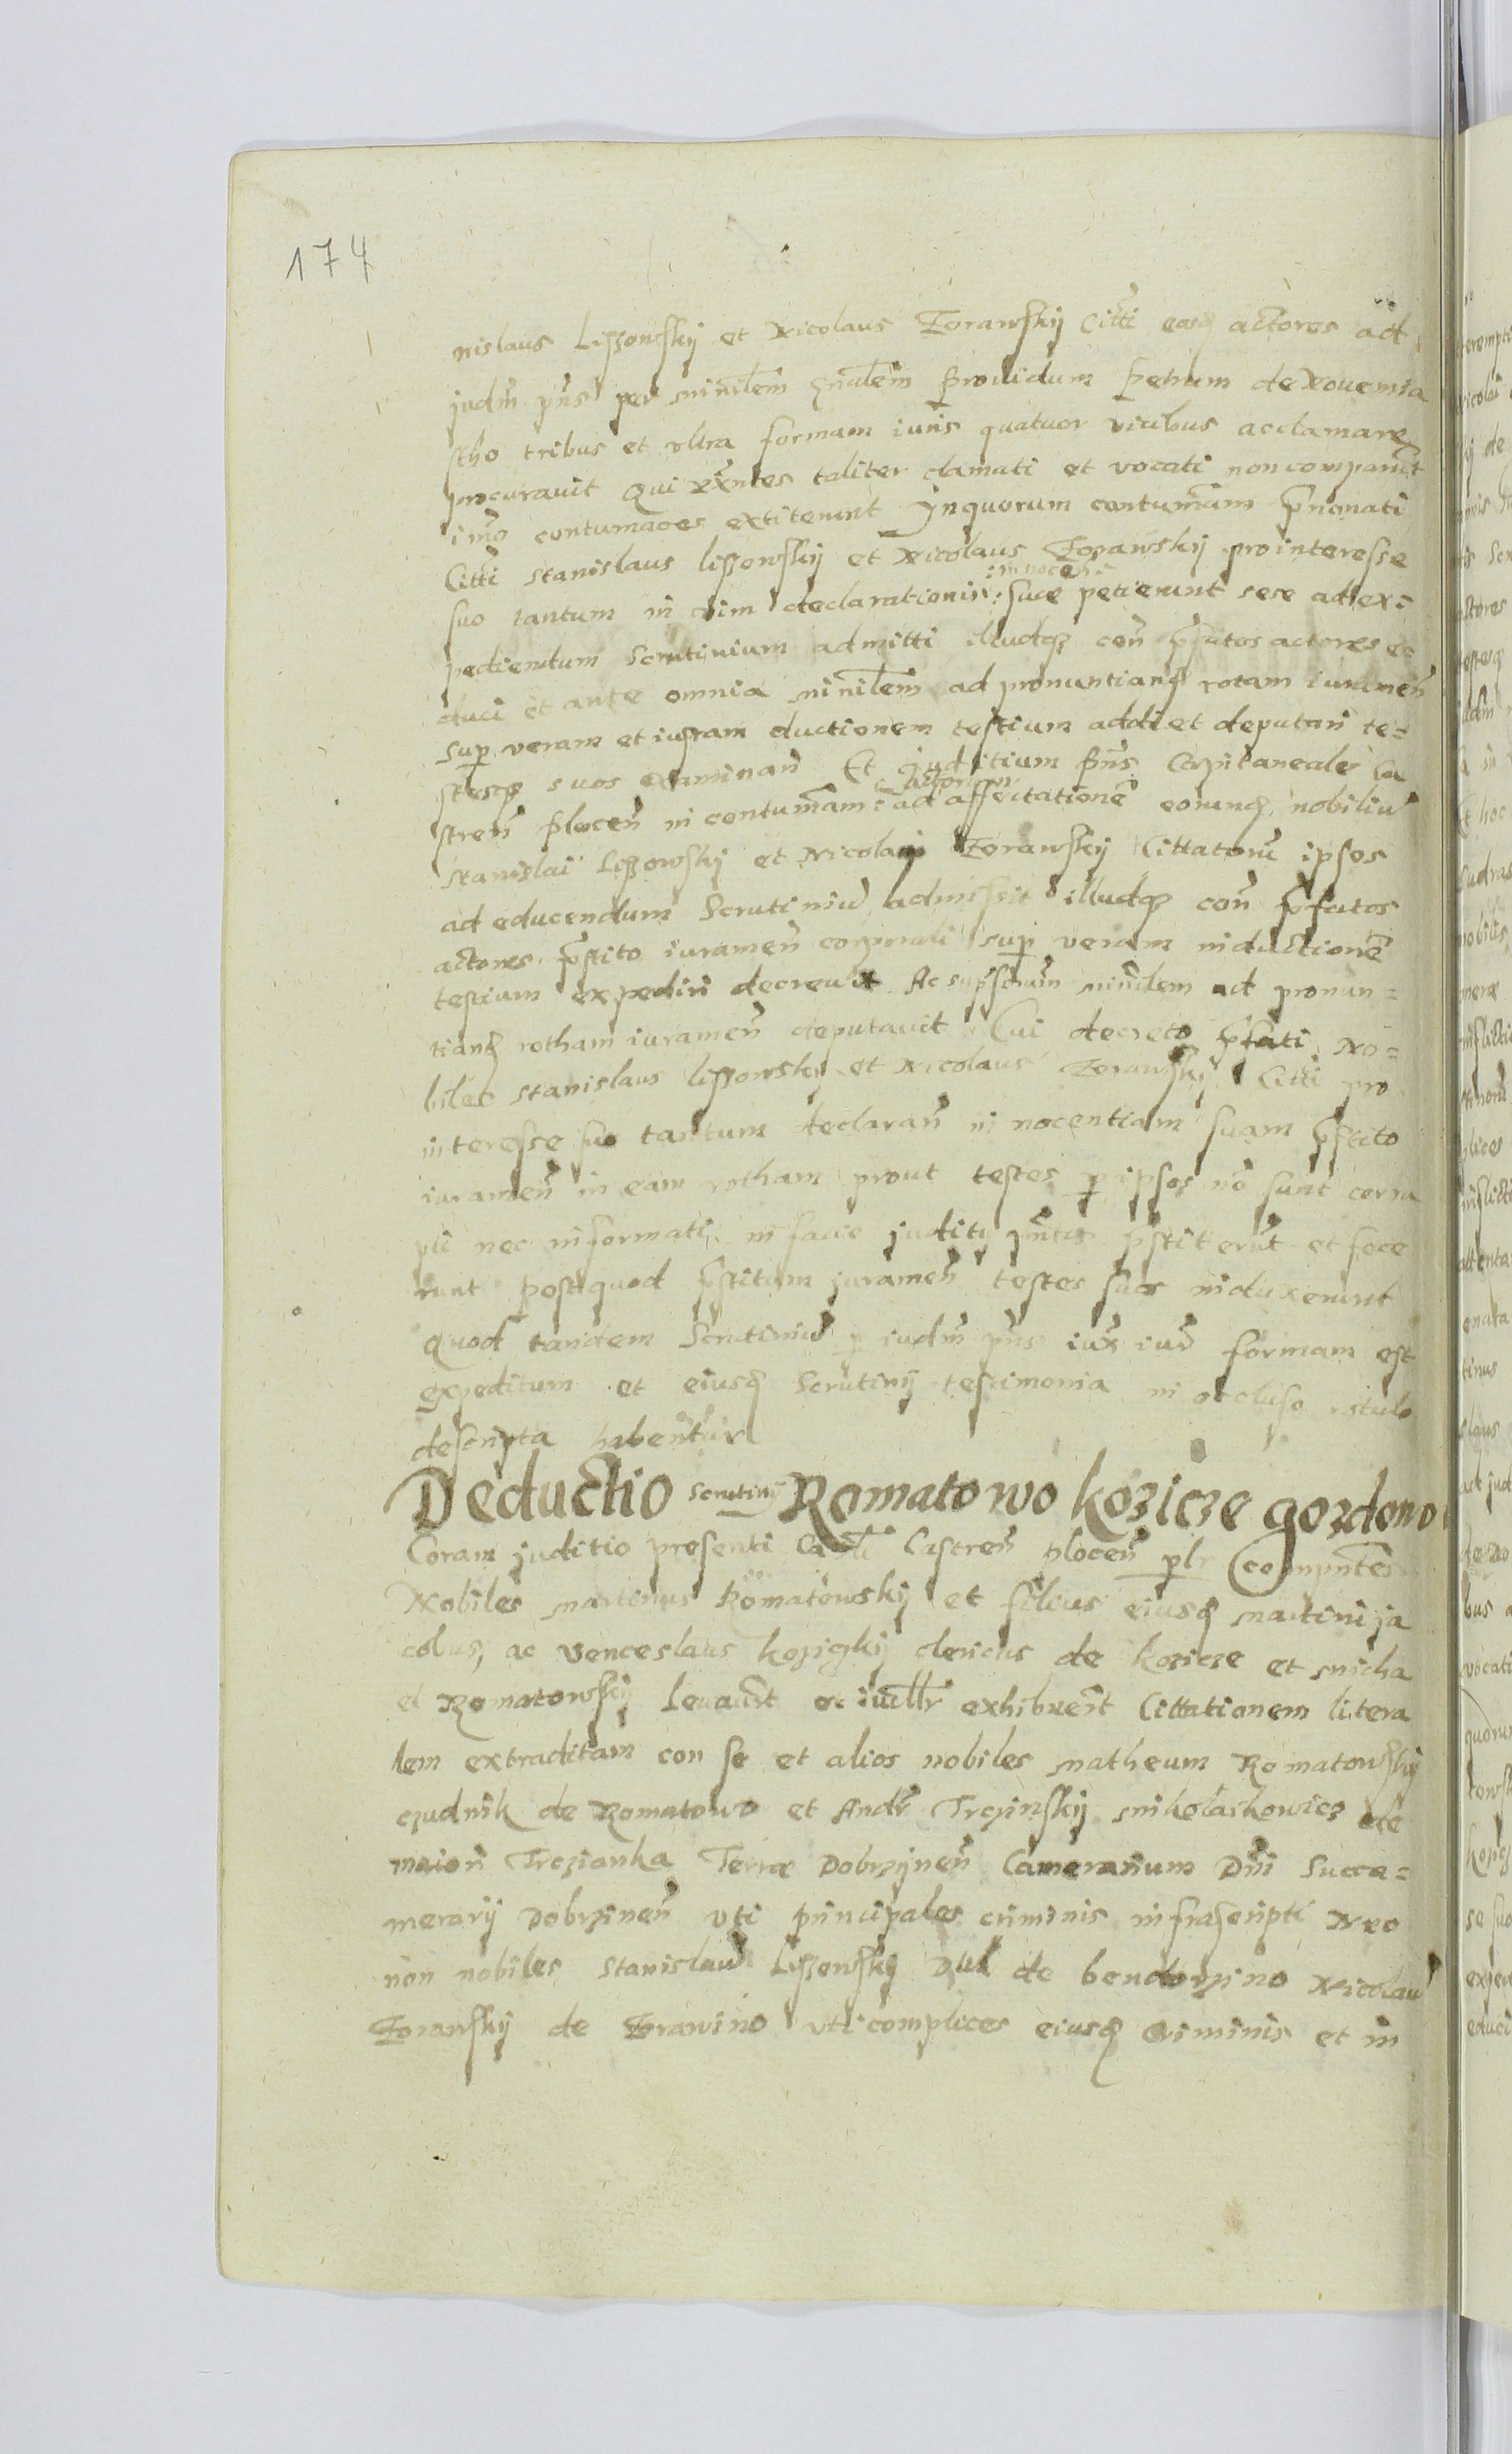 174
nislaus Lissowskij et Nicolaus Zorawskij Citti eosq actores ad
judm pns per minilem gnalem prouidum petrum de Novemia
stho tribus et vltra formam iuris quatuor vicibus acclamare
procuravit Qui exntes taliter clamati et vocati non comparuert
imo contumaces extiterunt Inquorum contumam prnonati
Citti Stanislaus lissowskij et Nicolaus Zorawskij pro interesse
suo tantum in vim declarationis : innocen : suae petierunt sese ad ex=
pediendum Scrutinium admitti illudq con pfatos actores e=
duci et ante omnia minilem ad pronuntiang rotam iuramen
sup veram et iustam ductionem testium addi et deputari te=
stesq suos examinari Et juditium pns Capitaneale Ca
stren plocen in contumam : actorum ad affectatione eorunq nobiliu
Stanislai Lissowskj et Nicolaij Zorawskij Cittatoru ipsos
ad educendum Scrutiniu admissit illudq con pfatos
actores pstito iuramen corporali sup veram inductione
testium expediri decreuit Ac supscrum minilem ad pronun=
tiang rotham iuramen deputavit Cui decreto pfati No=
biles Stanislaus lissowskij et Nicolaus Zorawskij Citti pro
interesse suo tantum declaran in nocentiam suam pstito
iuramen in eam rotham prout testes p ipsos no sunt corru
pti nec informati in facie juditij pntis pstiterut et fece
runt post quod pstitum juramen testes suos induxerunt
Quod tandem Scrutiniu p iudm pns iux iur formam est
expeditum et eiusq Scrutinij testimonia in occluso rotulo
descripta habentur
Deductio Scrutinij Romatowo kozicze gozdowo
Coram juditio presenti Castren plocen plr comparntes
Nobiles martinus Romatowskij et filius eiusq martini ja
cobus, ac Venceslaus kozigkij clericus de kozicze et micha
el Romatowskij levarut et iudllr exhibuert Cittationem litera
lem extraditam con se et alios nobiles matheum Romatowskij
czudnik de Romatowo et Andr Trczinskij mikolaikowicz de
maiori Trczianka Terrae Dobrzynen Camerarium Dni Succa=
merarij Dobrzinen vti principales criminis infrascripti Nec
non nobiles Stanislau Lissowskij de bendorzino Nicolau
Zorawskij de Zorawino vti complices eiusq criminis et in